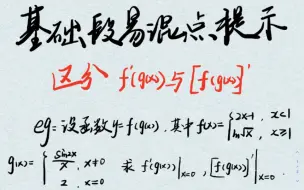 基础段易混点提示
区分 f'(g(x)) 与 [f(g(x))]'
eg:设函数y=f(g(x)),其中f(x)={2x-1, x<1
ln√x, x≥1
g(x)={sin2x/x, x≠0
2, x=0
求 f'(g(x))|x=0, [f(g(x))]'|x=0